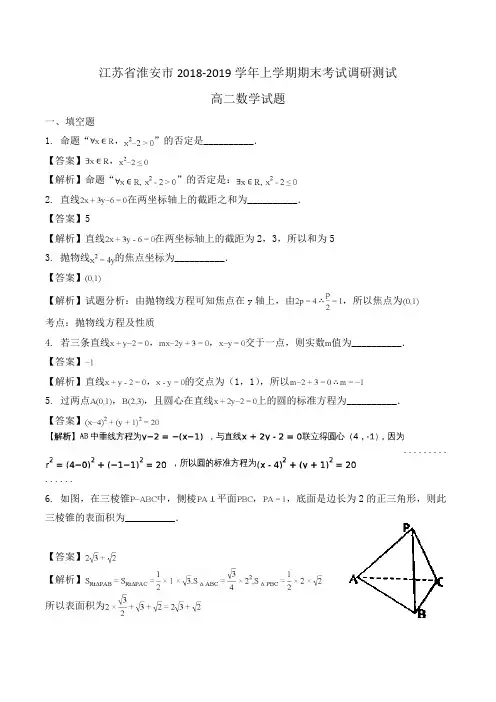 江苏省淮安市 2018-2019 学年上学期期末考试调研测试
高二数学试题
一、填空题
1. 命题“∀x ∈ R，x²−2 > 0”的否定是__________．
【答案】∃x ∈ R，x²−2 ≤ 0
【解析】命题“∀x ∈ R, x² - 2 > 0”的否定是：∃x ∈ R, x² - 2 ≤ 0
2. 直线2x + 3y−6 = 0在两坐标轴上的截距之和为__________．
【答案】5
【解析】直线2x + 3y - 6 = 0在两坐标轴上的截距为 2，3，所以和为 5
3. 抛物线x² = 4y的焦点坐标为__________．
【答案】(0,1)
【解析】试题分析：由抛物线方程可知焦点在 y 轴上，由2p = 4 ∴ p/2 = 1，所以焦点为(0,1)
考点：抛物线方程及性质
4. 若三条直线x + y−2 = 0，mx−2y + 3 = 0，x−y = 0交于一点，则实数m值为__________．
【答案】−1
【解析】直线x + y - 2 = 0，x - y = 0的交点为（1，1），所以m−2 + 3 = 0 ∴ m = −1
5. 过两点A(0,1)，B(2,3)，且圆心在直线x + 2y−2 = 0上的圆的标准方程为__________．
【答案】(x−4)² + (y + 1)² = 20
【解析】AB 中垂线方程为y−2 = −(x−1) ，与直线x + 2y - 2 = 0联立得圆心（4，-1），因为
r² = (4−0)² + (−1−1)² = 20 ，所以圆的标准方程为(x - 4)² + (y + 1)² = 20
6. 如图，在三棱锥P−ABC中，侧棱PA ⊥ 平面PBC，PA = 1，底面是边长为 2 的正三角形，则此
三棱锥的表面积为__________．
【答案】2√3 + √2
【解析】S_{RtΔPAB} = S_{RtΔPAC} = 1/2 × 1 × √3,S_{Δ ABC} = √3/4 × 2²,S_{Δ PBC} = 1/2 × 2 × √2
所以表面积为2 × √3/2 + √3 + √2 = 2√3 + √2
P
A
C
B